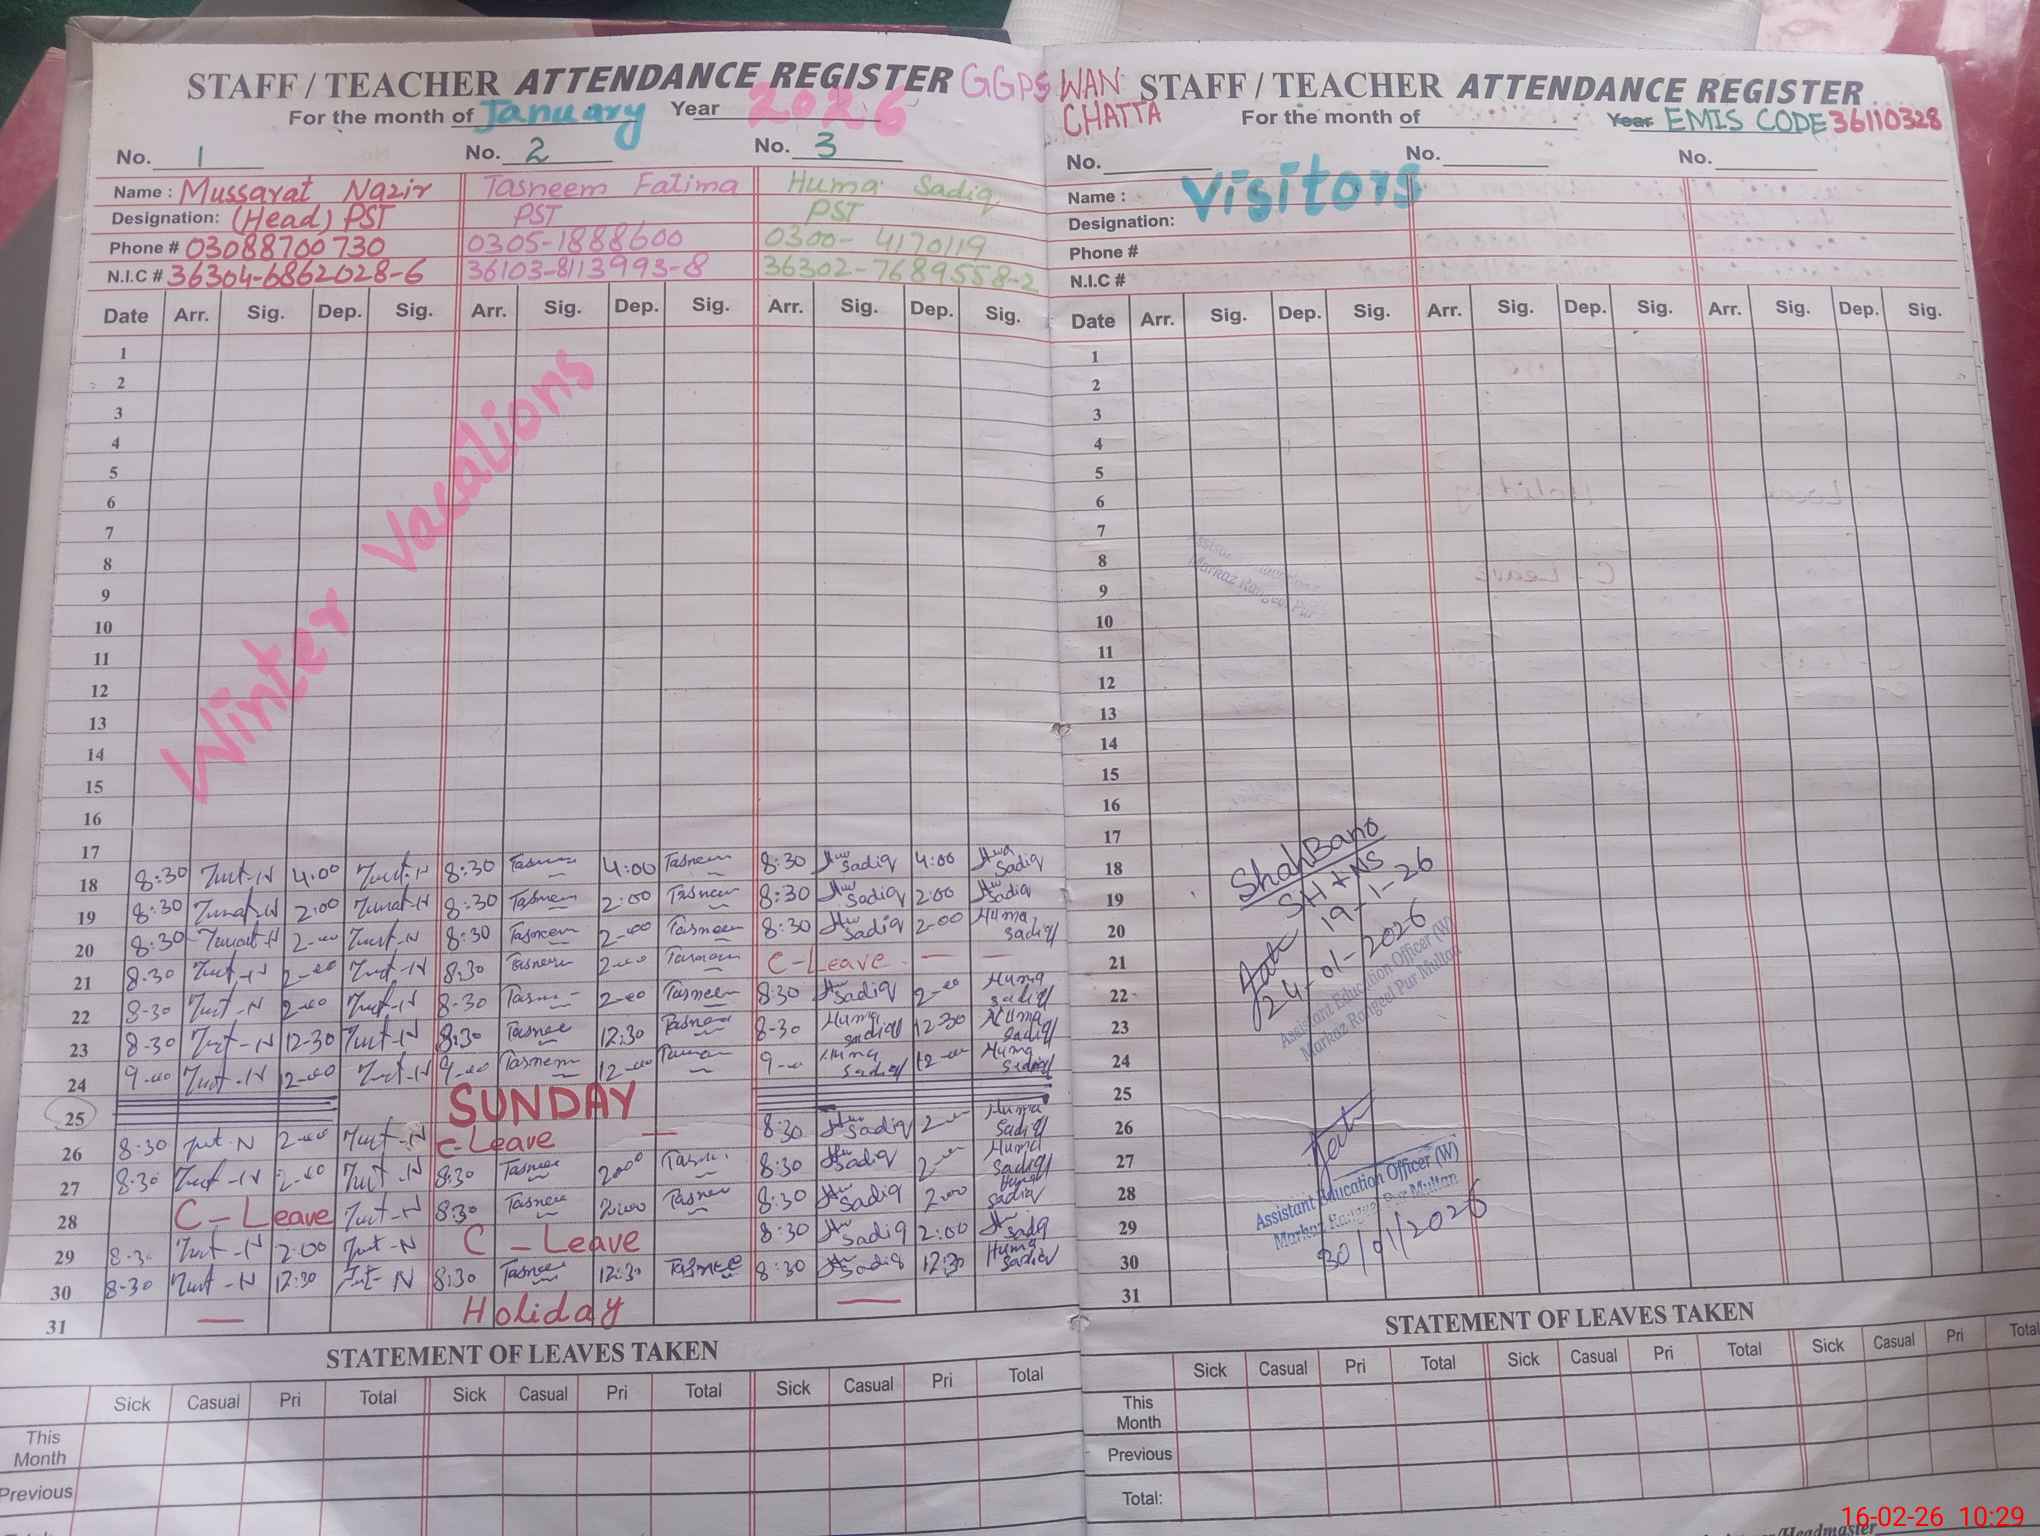 STAFF / TEACHER ATTENDANCE REGISTER GGPS
For the month of January Year 2026
No. 1 No. 2 No. 3
Name : Mussarat Nazir Tasneem Fatima Huma Sadiq
Designation: (Head) PST PST PST
Phone # 03088700730 0305-1888600 0300-4170119
N.I.C # 36304-6862028-6 36103-8113993-8 36302-7689558-2
Date Arr. Sig. Dep. Sig. Arr. Sig. Dep. Sig. Arr. Sig. Dep. Sig.
1
2
3
4
5
6
7
8
9
10
11
12
13
14
15
16
17
Winter Vacations
18 8:30 4:00 8:30 Tasneem 4:00 Tasneem 8:30 Sadiq 4:00 Sadiq
19 8:30 2:00 8:30 Tasneem 2:00 Tasneem 8:30 Sadiq 2:00 Sadiq
20 8:30 2-00 8:30 Tasneem 2-00 Tasneem 8:30 Sadiq 2-00 Huma Sadiq
21 8-30 2-00 8:30 Tasneem 2-00 C-Leave - -
22 8-30 2-00 8-30 2-00 Tasneem 8:30 Sadiq 2-00 Huma Sadiq
23 8-30 12-30 8:30 Tasnee 12:30 Tasnee 8-30 Huma Sadiq 12-30 Huma Sadiq
24 9-00 12-00 9-00 Tasneem 12-00 9-00 Huma Sadiq 12-00 Huma Sadiq
25 SUNDAY
26 8:30 2-00 C-Leave — 8:30 Sadiq 2-00 Huma Sadiq
27 8:30 2-00 8:30 Tasnee 2:00 8:30 Sadiq 2-00 Huma Sadiq
28 C-Leave 8:30 Tasnee 2:00 Tasnee 8:30 Sadiq 2:00 Huma Sadiq
29 8-30 2:00 C-Leave 8:30 Sadiq 2:00 Sadiq
30 8-30 12:30 8:30 Tasnee 12:30 Tasnee 8:30 Sadiq 12:30 Huma Sadiq
31 — Holiday —
STATEMENT OF LEAVES TAKEN
Sick Casual Pri Total Sick Casual Pri Total Sick Casual Pri Total
This Month
Previous
WAN STAFF / TEACHER ATTENDANCE REGISTER
CHATTA For the month of Year EMIS CODE 36110328
No. No. No.
Name : Visitors
Designation:
Phone #
N.I.C #
Date Arr. Sig. Dep. Sig. Arr. Sig. Dep. Sig. Arr. Sig. Dep. Sig.
1
2
3
4
5
6
7
8
9
Markaz Rangeel Pur
10
11
12
13
14
15
16
17
18
19
20
21
22
23
24
25
26
27
28
29
30
31
Shah Bano
SH+NS
19-1-26
24-01-2026
Assistant Education Officer (W)
Markaz Rangeel Pur Multan
Assistant Education Officer (W)
Markaz Rangeel Pur Multan
30/01/2026
STATEMENT OF LEAVES TAKEN
Sick Casual Pri Total Sick Casual Pri Total Sick Casual Pri Total
This Month
Previous
Total:
/Headmaster
16-02-26 10:29